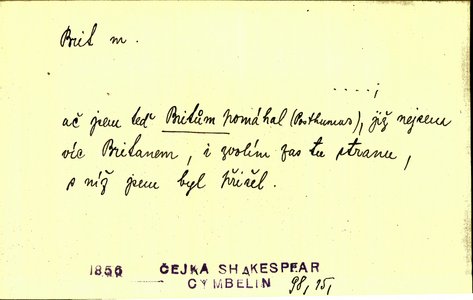 Brit m.
....;
ač jsem teď Britům pomáhal (Posthumus), již nejsem
víc Britanem, i zvolím zas tu stranu,
s níž jsem byl přišel.
1856 ČEJKA SHAKESPEAR
CYMBELIN 98, 15,